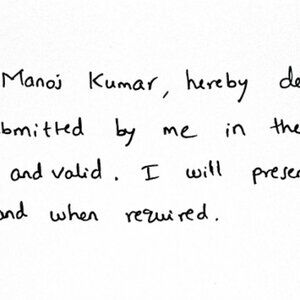 Manoj Kumar, hereby de
bmitted by me in the
and valid. I will prese
and when required.